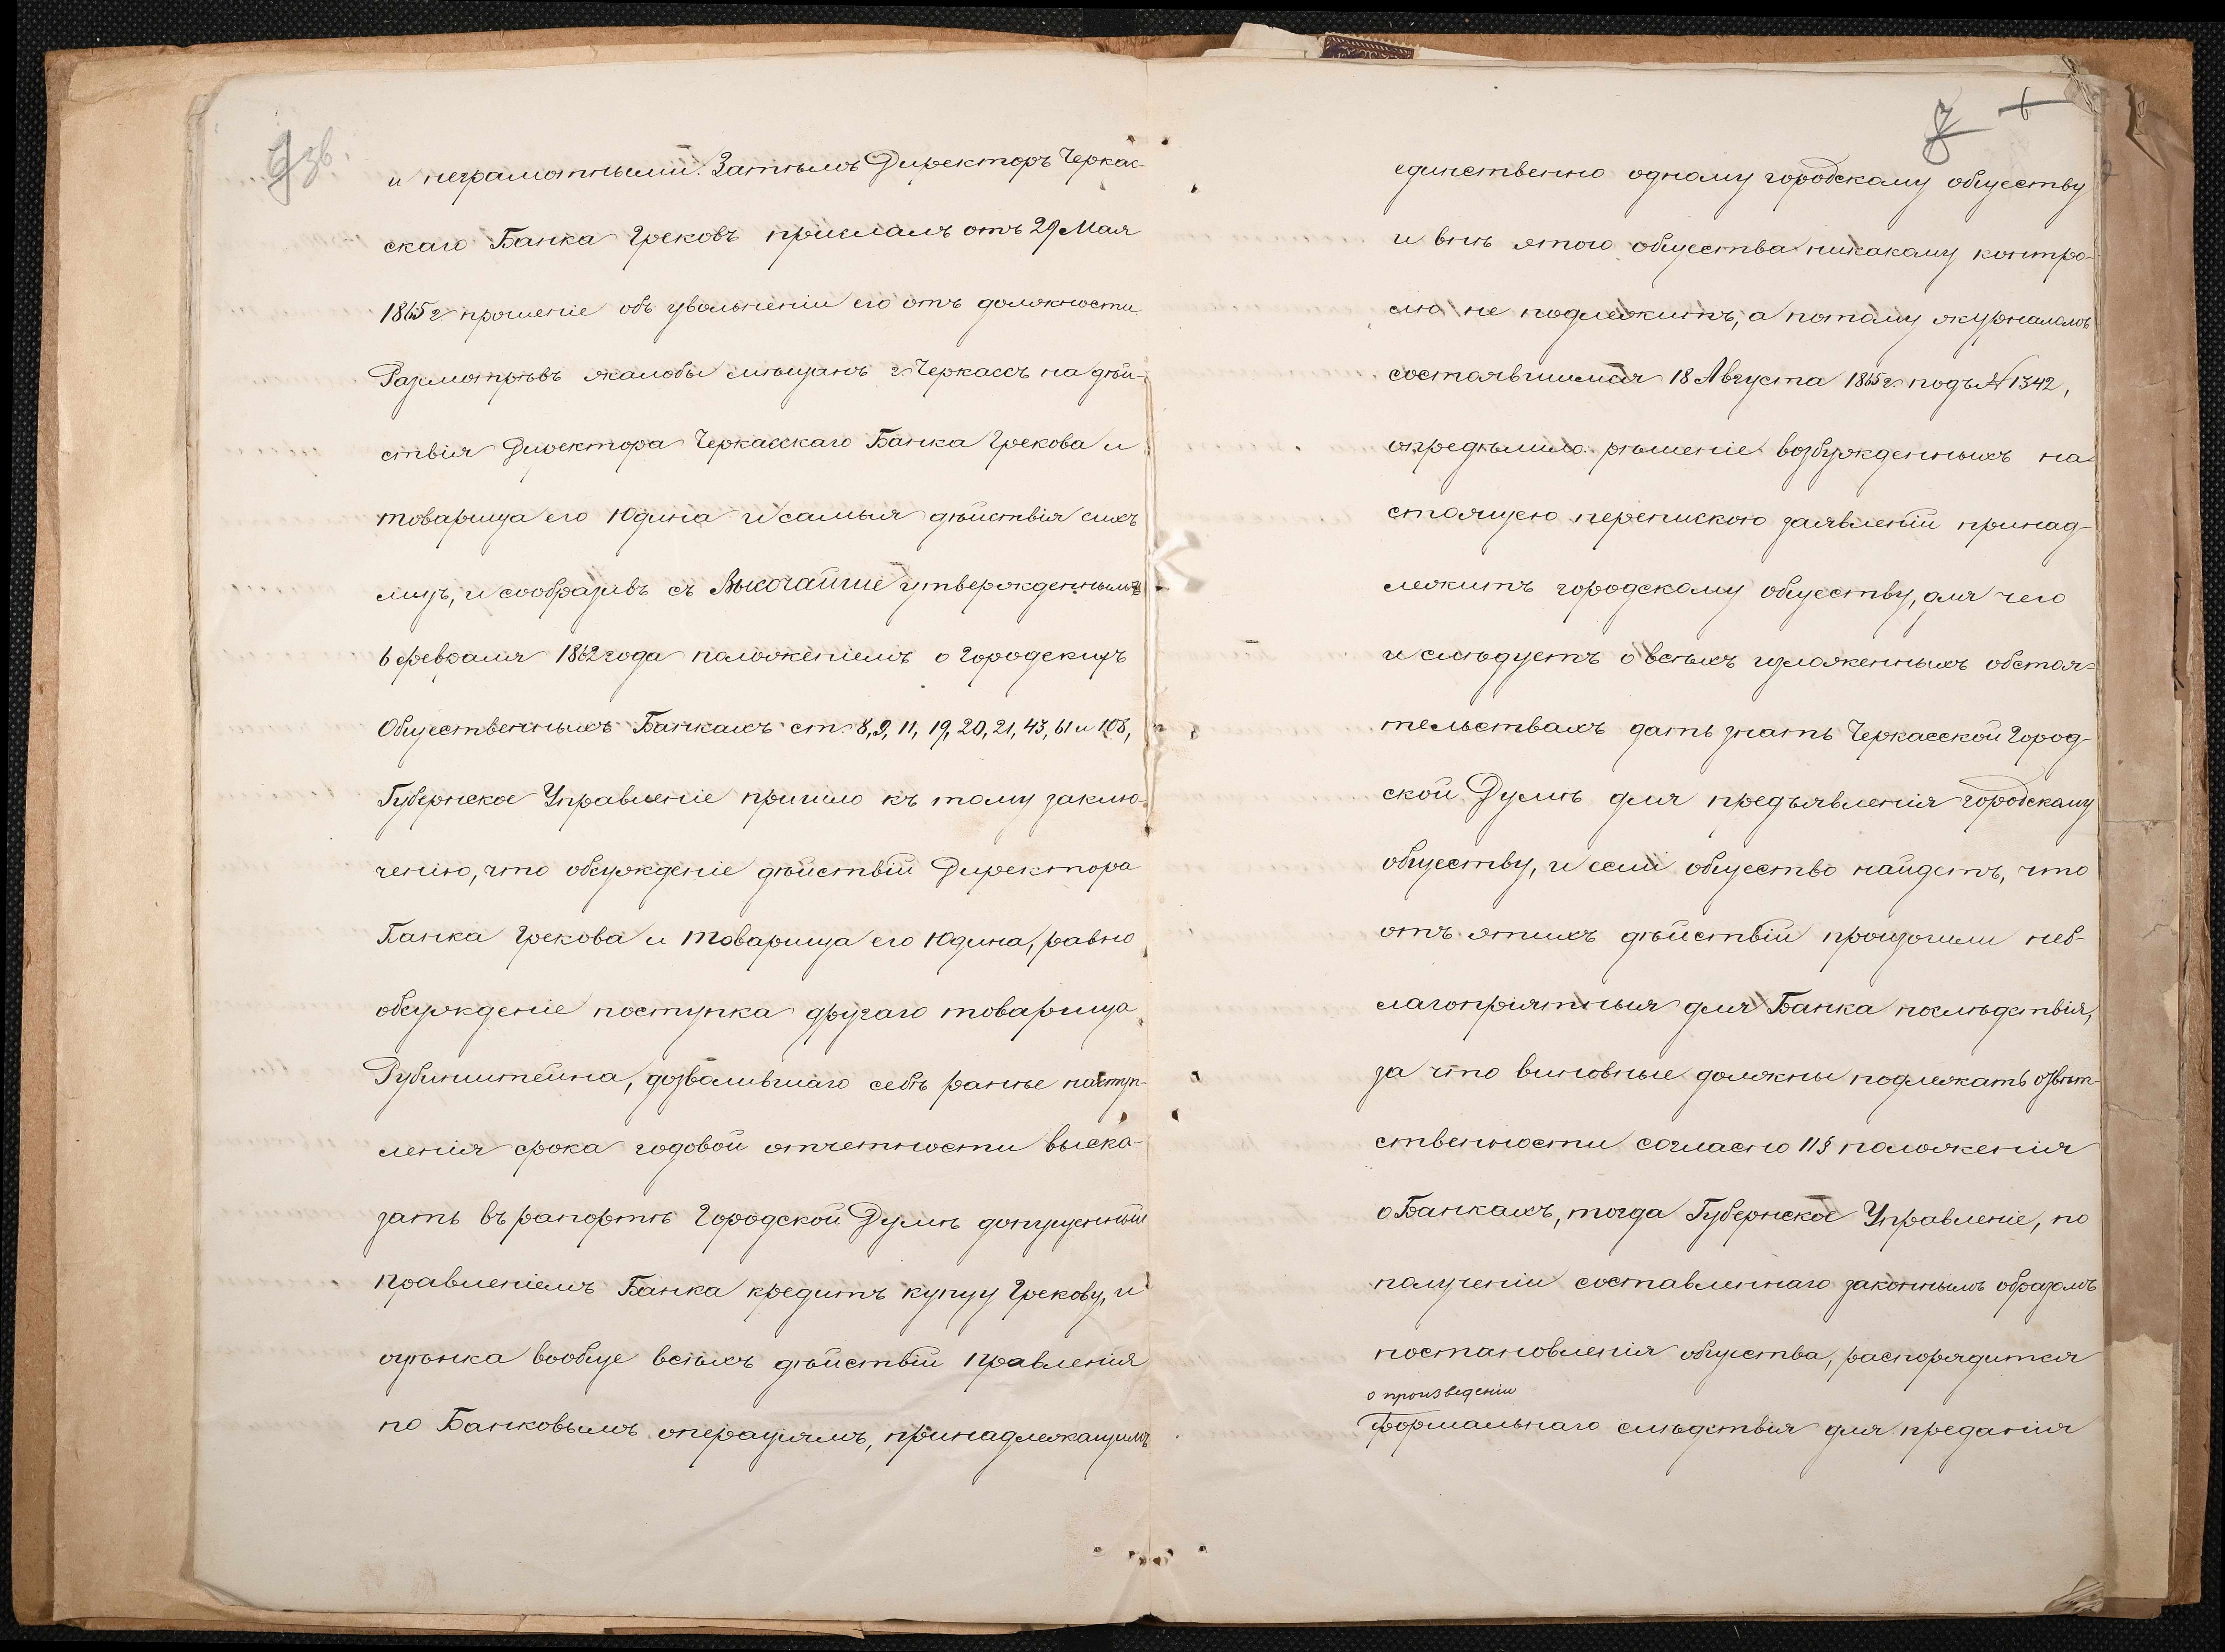 и неграмотными. Затѣмъ Директоръ Черкас-
скаго Банка Грековъ прислалъ отъ 29 Мая
1865 г. прошеніе объ увольненіи его отъ должности.
Разсмотрѣвъ жалобы мѣщанъ г. Черкассъ на дѣй-
ствія Директора Черкасскаго Банка Грекова и
товарища его Юдина и самыя дѣйствія сихъ
лицъ, и сообразивъ съ Высочайше утвержденнымъ
6 февраля 1862 года положеніемъ о Городскихъ
Общественныхъ Банкахъ ст. 8, 9, 11, 19, 20, 21, 43, 61 и 108,
Губернское Управленіе пришло къ тому заклю-
ченію, что обсужденіе дѣйствій Директора
Банка Грекова и товарища его Юдина, равно
обсужденіе поступка другаго товарища
Рубинштейна, дозволившаго себѣ ранѣе наступ-
ленія срока годовой отчетности выска-
зать въ рапортѣ Городской Думѣ допущенный
правленіемъ Банка кредитъ купцу Грекову, и
оцѣнка вообще всѣхъ дѣйствій правленія
по Банковымъ операціямъ, принадлежащимъ
единственно одному городскому обществу
и внѣ этого общества никакому контро-
лю не подлежитъ, а потому журналомъ
состоявшимся 18 Августа 1865 г. подъ № 1342,
опредѣлило: рѣшеніе возбужденныхъ на-
стоящею перепискою заявленій принад-
лежитъ городскому обществу, для чего
и слѣдуетъ о всѣхъ изложенныхъ обстоя-
тельствахъ дать знать Черкасской Город-
ской Думѣ для предъявленія городскому
обществу, и если общество найдетъ, что
отъ этихъ дѣйствій произошли неб-
лагопріятныя для Банка послѣдствія,
за что виновные должны подлежать отвѣт-
ственности согласно 11 § положенія
о Банкахъ, тогда Губернское Управленіе, по
полученіи составленнаго законнымъ образомъ
постановленія общества, распорядится
о произведеніи
формальнаго слѣдствія для преданія